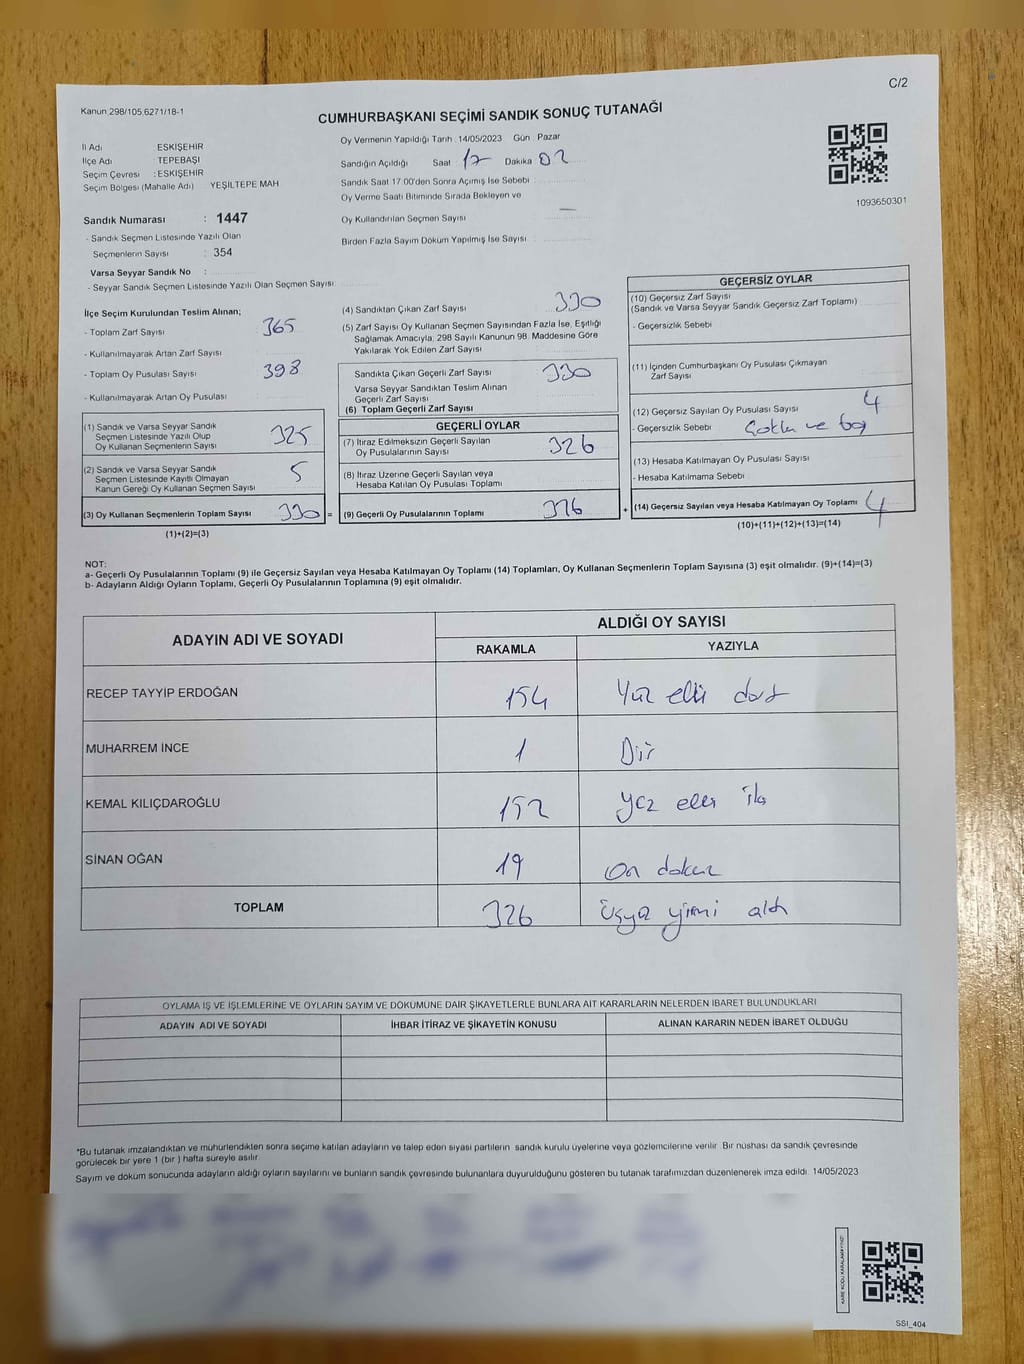 C/2
Kanun 298/105,6271/18-1
CUMHURBAŞKANI SEÇİMİ SANDIK SONUÇ TUTANAĞI
İl Adı ESKİŞEHİR
İlçe Adı TEPEBAŞI
Seçim Çevresi : ESKİŞEHİR
Seçim Bölgesi (Mahalle Adı) YEŞİLTEPE MAH
Sandık Numarası : 1447
- Sandık Seçmen Listesinde Yazılı Olan
Seçmenlerin Sayısı : 354
Varsa Seyyar Sandık No :
- Seyyar Sandık Seçmen Listesinde Yazılı Olan Seçmen Sayısı
Oy Vermenin Yapıldığı Tarih 14/05/2023 Gün Pazar
Sandığın Açıldığı Saat 17 Dakika 02
Sandık Saat 17:00'den Sonra Açımış İse Sebebi
Oy Verme Saati Bitiminde Sırada Bekleyen ve
Oy Kullandırılan Seçmen Sayısı —
Birden Fazla Sayım Döküm Yapılmış İse Sayısı
1093650301
İlçe Seçim Kurulundan Teslim Alınan;
- Toplam Zarf Sayısı 365
- Kullanılmayarak Artan Zarf Sayısı
- Toplam Oy Pusulası Sayısı 398
- Kullanılmayarak Artan Oy Pusulası
(1) Sandık ve Varsa Seyyar Sandık
Seçmen Listesinde Yazılı Olup
Oy Kullanan Seçmenlerin Sayısı 325
(2) Sandık ve Varsa Seyyar Sandık
Seçmen Listesinde Kayıtlı Olmayan
Kanun Gereği Oy Kullanan Seçmen Sayısı 5
(3) Oy Kullanan Seçmenlerin Toplam Sayısı 330 =
(1)+(2)=(3)
(4) Sandıktan Çıkan Zarf Sayısı 330
(5) Zarf Sayısı Oy Kullanan Seçmen Sayısından Fazla İse, Eşitliği
Sağlamak Amacıyla, 298 Sayılı Kanunun 98. Maddesine Göre
Yakılarak Yok Edilen Zarf Sayısı
Sandıkta Çıkan Geçerli Zarf Sayısı 330
Varsa Seyyar Sandıktan Teslim Alınan
Geçerli Zarf Sayısı
(6) Toplam Geçerli Zarf Sayısı
GEÇERLİ OYLAR
(7) İtiraz Edilmeksizin Geçerli Sayılan
Oy Pusulalarının Sayısı 326
(8) İtiraz Üzerine Geçerli Sayılan veya
Hesaba Katılan Oy Pusulası Toplamı
(9) Geçerli Oy Pusulalarının Toplamı 326 +
GEÇERSİZ OYLAR
(10) Geçersiz Zarf Sayısı
(Sandık ve Varsa Seyyar Sandık Geçersiz Zarf Toplamı)
- Geçersizlik Sebebi
(11) İçinden Cumhurbaşkanı Oy Pusulası Çıkmayan
Zarf Sayısı
(12) Geçersiz Sayılan Oy Pusulası Sayısı 4
- Geçersizlik Sebebi ve
(13) Hesaba Katılmayan Oy Pusulası Sayısı
- Hesaba Katılmama Sebebi
(14) Geçersiz Sayılan veya Hesaba Katılmayan Oy Toplamı 4
(10)+(11)+(12)+(13)=(14)
NOT:
a- Geçerli Oy Pusulalarının Toplamı (9) ile Geçersiz Sayılan veya Hesaba Katılmayan Oy Toplamı (14) Toplamları, Oy Kullanan Seçmenlerin Toplam Sayısına (3) eşit olmalıdır. (9)+(14)=(3)
b- Adayların Aldığı Oyların Toplamı, Geçerli Oy Pusulalarının Toplamına (9) eşit olmalıdır.
ADAYIN ADI VE SOYADI ALDIĞI OY SAYISI
RAKAMLA YAZIYLA
RECEP TAYYİP ERDOĞAN 154 Yüz elli dört
MUHARREM İNCE 1 Bir
KEMAL KILIÇDAROĞLU 152 yüz elli iki
SİNAN OĞAN 19 on dokuz
TOPLAM 326 üçyüz yirmi altı
OYLAMA İŞ VE İŞLEMLERİNE VE OYLARIN SAYIM VE DÖKÜMÜNE DAİR ŞİKAYETLERLE BUNLARA AİT KARARLARIN NELERDEN İBARET BULUNDUKLARI
ADAYIN ADI VE SOYADI İHBAR İTİRAZ VE ŞİKAYETİN KONUSU ALINAN KARARIN NEDEN İBARET OLDUĞU
*Bu tutanak imzalandıktan ve mühürlendikten sonra seçime katılan adayların ve talep eden siyasi partilerin sandık kurulu üyelerine veya gözlemcilerine verilir. Bir nüshası da sandık çevresinde
görülecek bir yere 1 (bir ) hafta süreyle asılır.
Sayım ve döküm sonucunda adayların aldığı oyların sayılarını ve bunların sandık çevresinde bulunanlara duyurulduğunu gösteren bu tutanak tarafımızdan düzenlenerek imza edildi. 14/05/2023
SSI_404